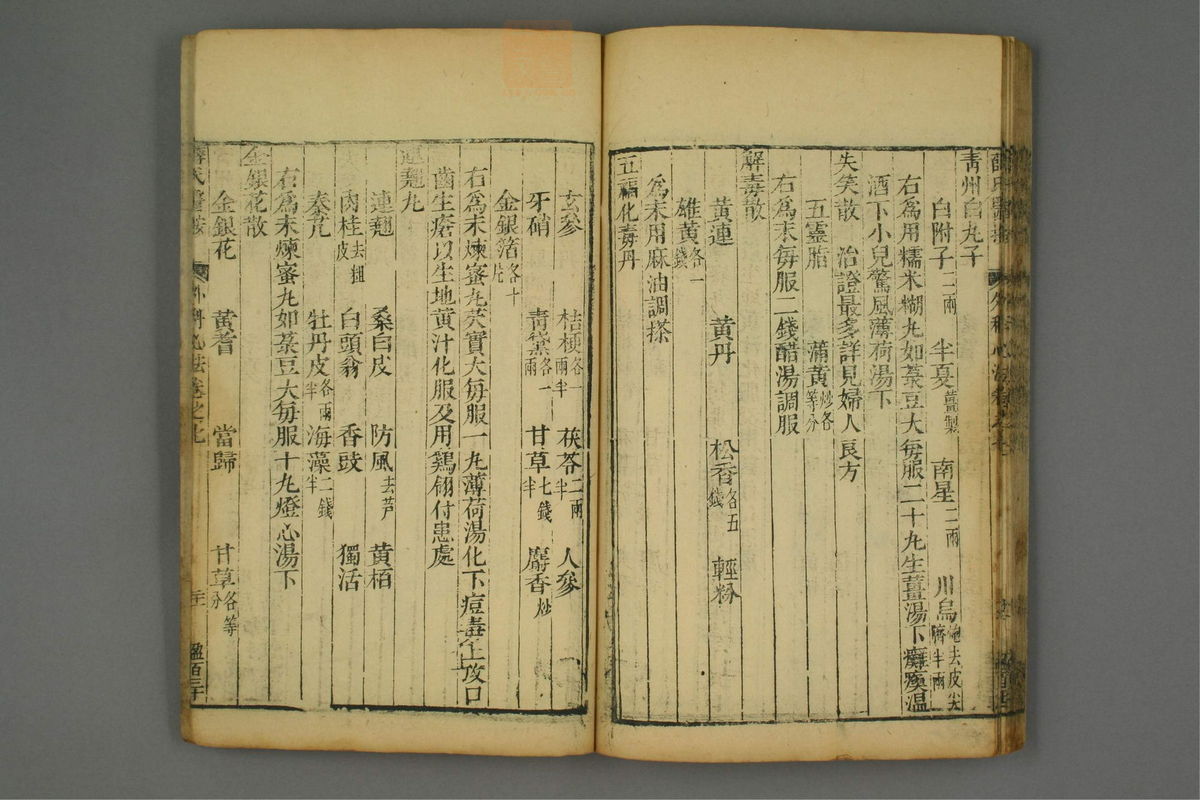 青州白丸子
白附子二兩 半夏薑製 南星二兩 川烏炮去皮尖臍半兩
右為用糯米糊丸如菉豆大每服二十丸生薑湯下癱瘓溫
酒下小兒驚風薄荷湯下
失笑散 治證最多詳見婦人良方
五靈脂 蒲黃炒各等分
右為末每服二錢醋湯調服
解毒散
黃連 黃丹 松香各五錢 輕粉
雄黃各一錢
為末用麻油調搽
五福化毒丹
玄參 桔梗各一兩半 茯苓二兩半 人參
牙硝 青黛各一兩 甘草七錢半 麝香炒
金銀箔各十片
右為末煉蜜丸芡實大每服一丸薄荷湯化下痘毒上攻口
齒生瘡以生地黃汁化服及用鷄翎付患處
連翹丸
連翹 桑白皮 防風去芦 黃栢
肉桂去粗皮 白頭翁 香豉 獨活
秦艽 牡丹皮各兩半 海藻二錢半
右為末煉蜜丸如菉豆大每服十丸燈心湯下
金銀花散
金銀花 黃耆 當歸 甘草各等分
外科心法卷之七